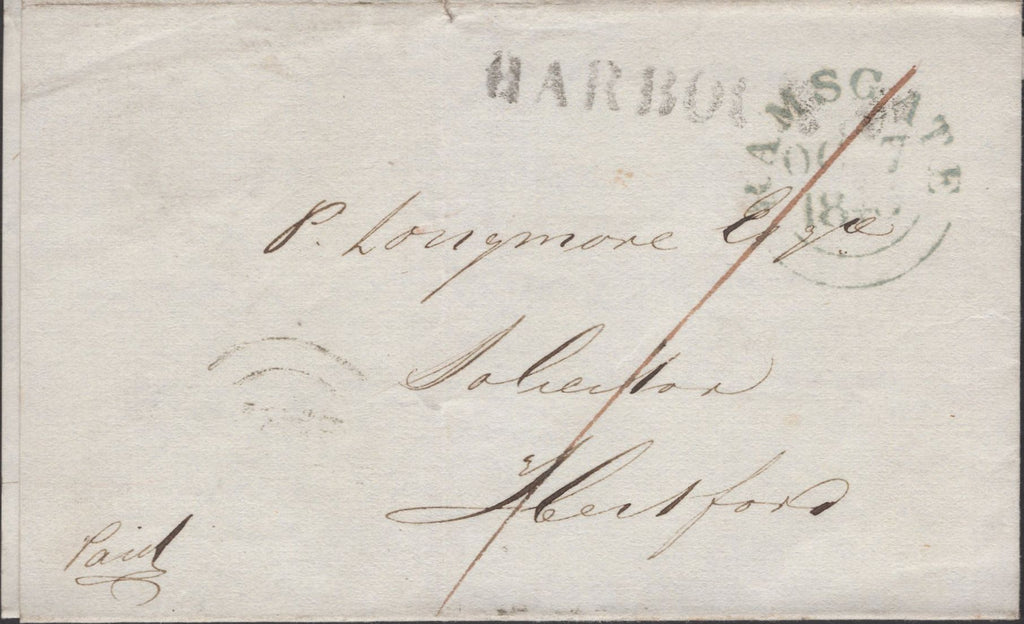 RAMSGATE
OC 7
P. Longmore Esqre
Solicitor
Hertford
Paid